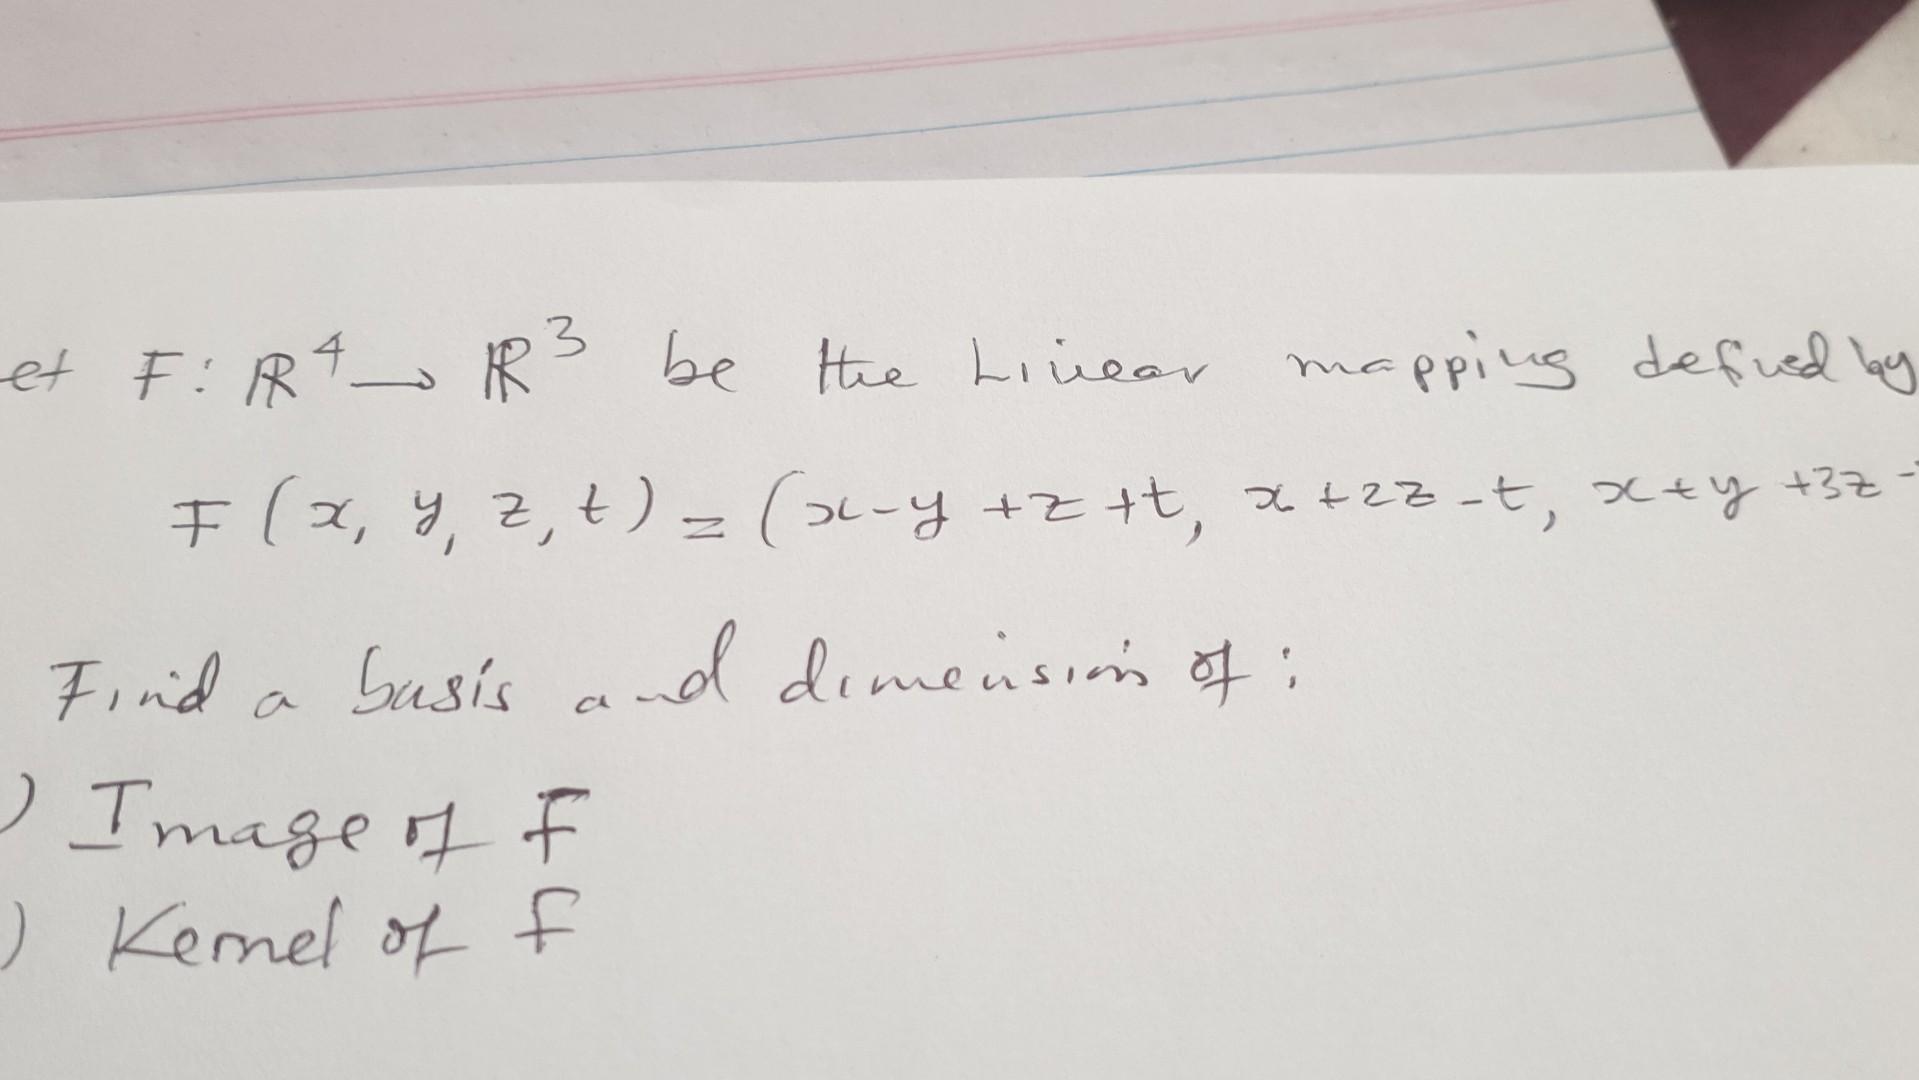 et F: ℝ⁴ → ℝ³ be the Linear mapping defined by
F(x, y, z, t) = (x-y+z+t, x+2z-t, x+y+3z-
Find a basis and dimension of:
) Image of F
) Kernel of F